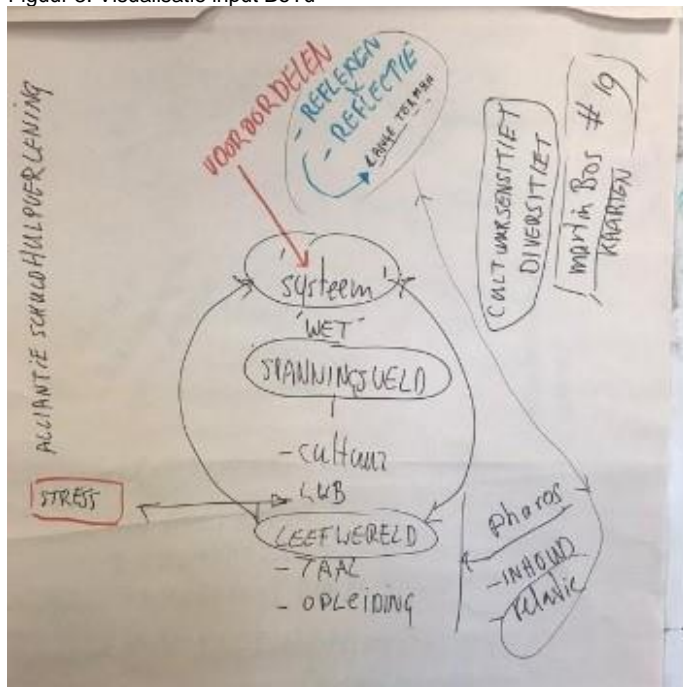 ALLIANTIE SCHULDHULPVERLENING
VOOROORDELEN
- REFLEREN
- REFLECTIE
LANGE TERMYN
CULTUURSENSITIET
DIVERSITIET
martin Bos # 19
KAARTEN
'systeem'
'WET'
SPANNINGSVELD
- cultuur
LVB
STRESS
LEEFWERELD
- TAAL
- OPLEIDING
pharos
- INHOUD
- relatie